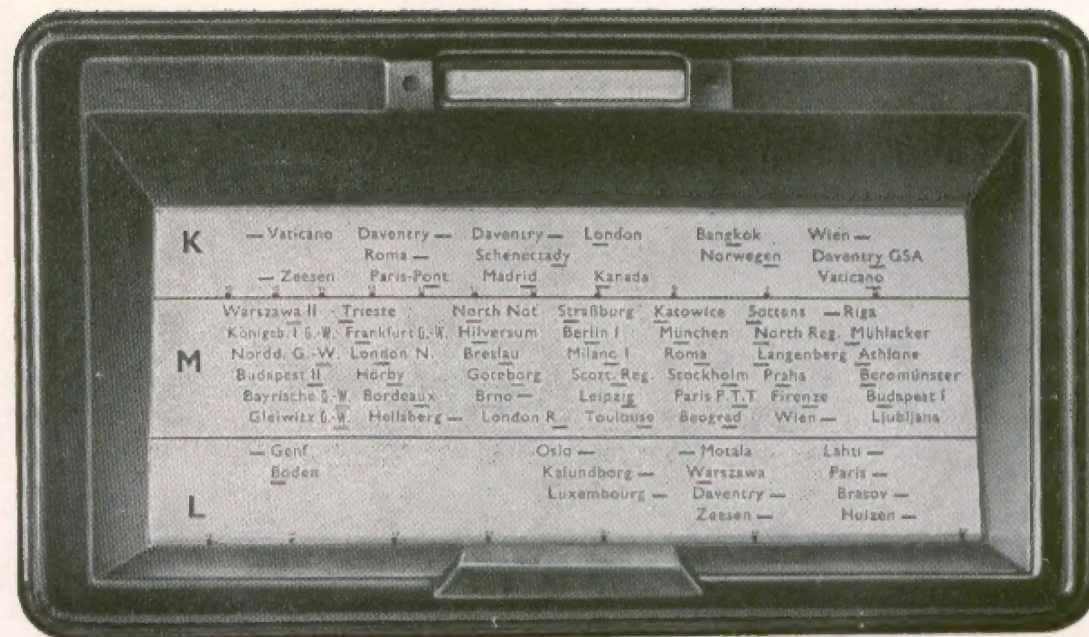 K — Vaticano Daventry — Daventry — London Bangkok Wien —
Roma — Schenectady Norwegen Daventry GSA
— Zeesen Paris-Pont Madrid Kanada Vaticano
Warszawa II Trieste North Nat Straßburg Katowice Sottens — Riga
Königsb. I G.-W. Frankfurt G.-W. Hilversum Berlin I München North Reg. Mühlacker
M Nordd. G.-W. London N. Breslau Milano I Roma Langenberg Athlone
Budapest II Hörby Göteborg Scott. Reg. Stockholm Praha Beromünster
Bayrische G.-W. Bordeaux Brno — Leipzig Paris P.T.T Firenze Budapest I
Gleiwitz G.-W. Heilsberg — London R. Toulouse Beograd Wien — Ljubljana
— Genf Oslo — — Motala Lahti —
Boden Kalundborg — Warszawa Paris —
L Luxembourg — Daventry — Brasov —
Zeesen — Huizen —